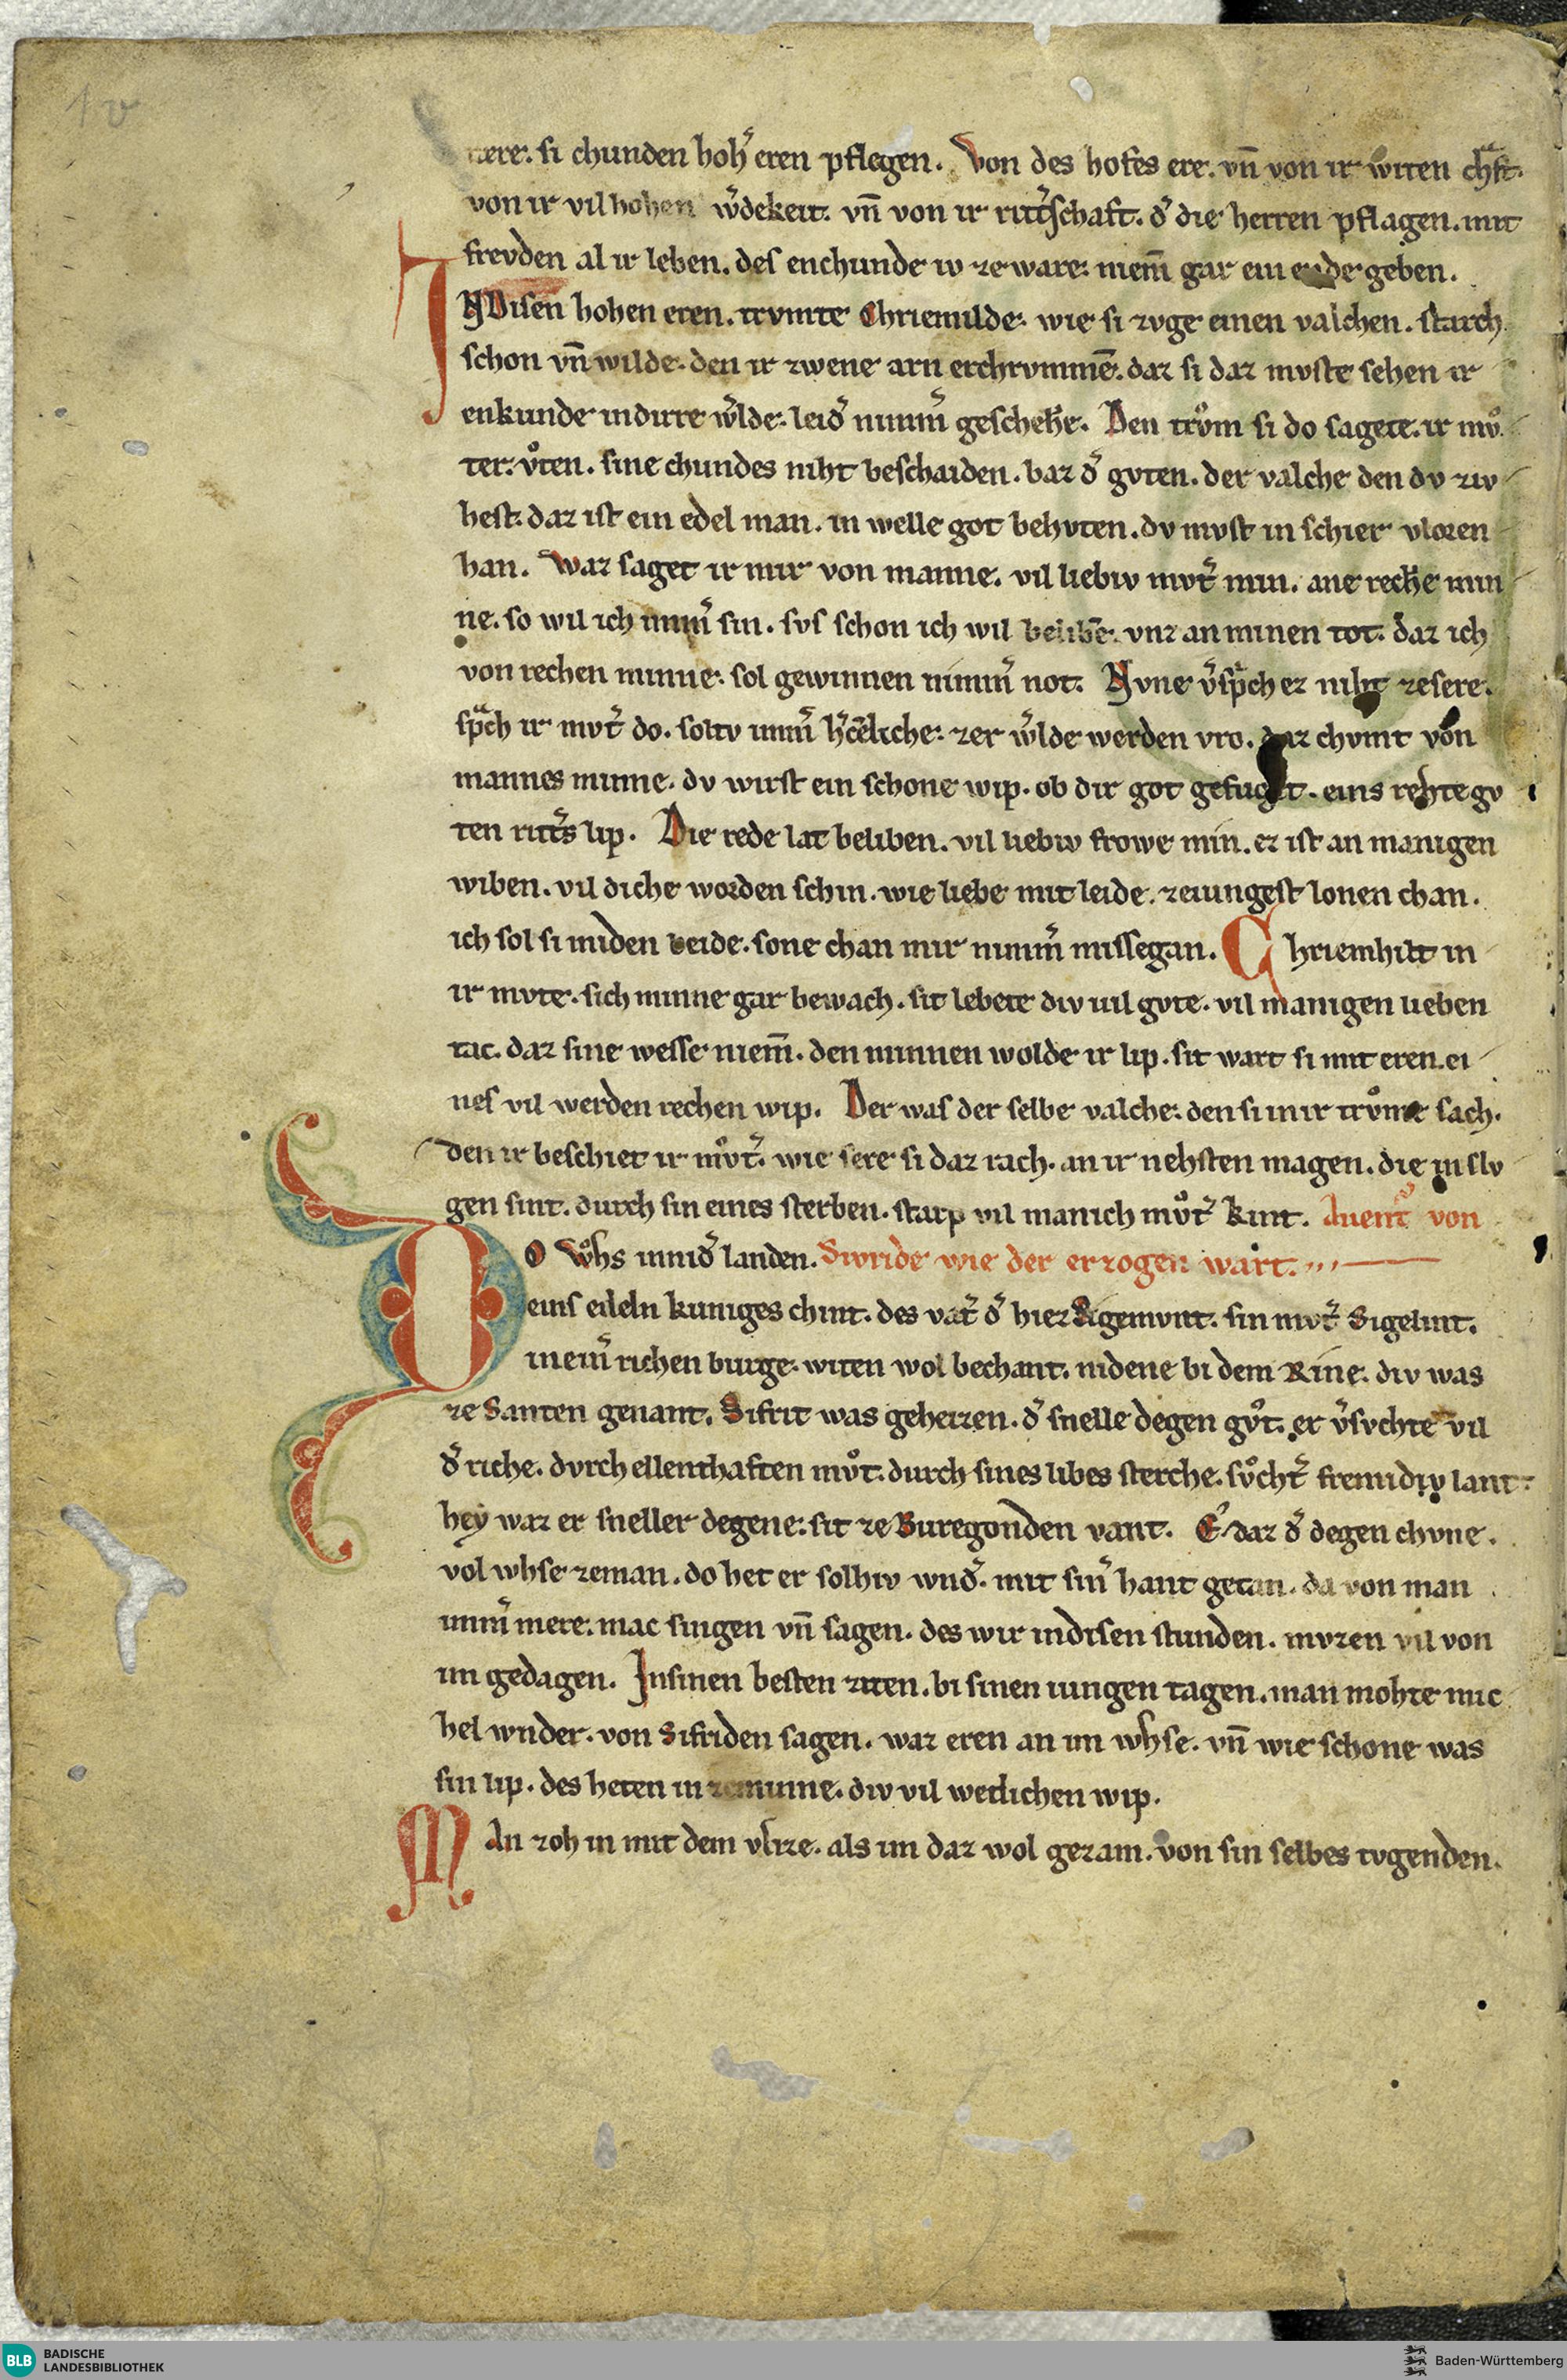 1v
nere. si chunden hoh̾ eren pflegen. Von des hofes ere. vn̄ von ir witen chͣft.
von ir vil hohen w̾dekeit. vn̄ von ir ritt̾schaft. d̾ die herren pflagen. mit
frevden al ir leben. des enchunde iv ze ware. niem̄ gar ein ende geben.
INDisen hohen eren. trvmte Chriemilde. wie si zvge einen valchen. starch
schon vn̄ wilde. den ir zwene arn erchrvmmē. daz si daz mvste sehen ir
enkunde indirre w̾lde. leid̾ nimm̾ geschehē. Den trovͦm si do sagete. ir mvͦ
ter. vͦten. sine chundes niht beschaiden. baz d̾ gvten. der valche den dv ziv
hest. daz ist ein edel man. in welle got behvten. dv mvst in schier vloren
han. Waz saget ir mir von manne. vil liebiv mvt̾ min. ane rechē min
ne. so wil ich imm̾ sin. svs schon ich wil belibē. vnz an minen tot. daz ich
von rechen minne. sol gewinnen nimm̾ not. Nvne v̾spͣch ez niht zesere.
spͣch ir mvt̾ do. soltv imm̾ h̾cēliche. zer w̾lde werden vro. daz chvmt von
mannes minne. dv wirst ein schone wip. ob dir got gefuget. eins rehte gv
ten ritt̾s lip. Die rede lat beliben. vil liebiv frowe min. ez ist an manigen
wiben. vil diche worden schin. wie liebe mit leide. zeiungest lonen chan.
ich sol si miden beide. sone chan mir nimm̾ missegan. Chriemhilt in
ir mvte. sich minne gar bewach. sit lebete div uil gvte. vil manigen lieben
tac. daz sine wesse niem̄. den minnen wolde ir lip. sit wart si mit eren. ei
nes vil werden rechen wip. Der was der selbe valche. den si in ir trovͦme sach.
den ir beschiet ir mvͦt̾. wie sere si daz rach. an ir nehsten magen. die in slv
gen sint. durch sin eines sterben. starp vil manich mvͦt̾ kint. Auent̾ von
DO wͦhs innid̾ landen. Sivride wie der erzogen wart.
eins edeln kuniges chint. des vat̾ d̾ hiez Sigemvnt. sin mvt̾ Sigelint.
in eim̾ richen burge. witen wol bechant. nidene bi dem Rine. div was
ze Santen genant. Sifrit was geheizen. d̾ snelle degen gvͦt. er v̾svchte vil
d̾ riche. dvrch ellenthaften mvͦt. durch sines libes sterche. svͦcht̾ fremidiv lant.
hey waz er sneller degene. sit ze Buregonden vant. E daz d̾ degen chvne.
vol whse zeman. do het er solhiv wnd̾. mit sin̾ hant getan. da von man
imm̾ mere. mac singen vn̄ sagen. des wir indisen stunden. mvzen vil von
im gedagen. Insinen besten ziten. bi sinen iungen tagen. man mohte mic
hel wnder. von Sifriden sagen. waz eren an im whse. vn̄ wie schone was
sin lip. des heten in ze minne. div vil wetlichen wip.
MAn zoh in mit dem vlize. als im daz wol gezam. von sin selbes tvgenden.
BLB BADISCHE
LANDESBIBLIOTHEK
Baden-Württemberg